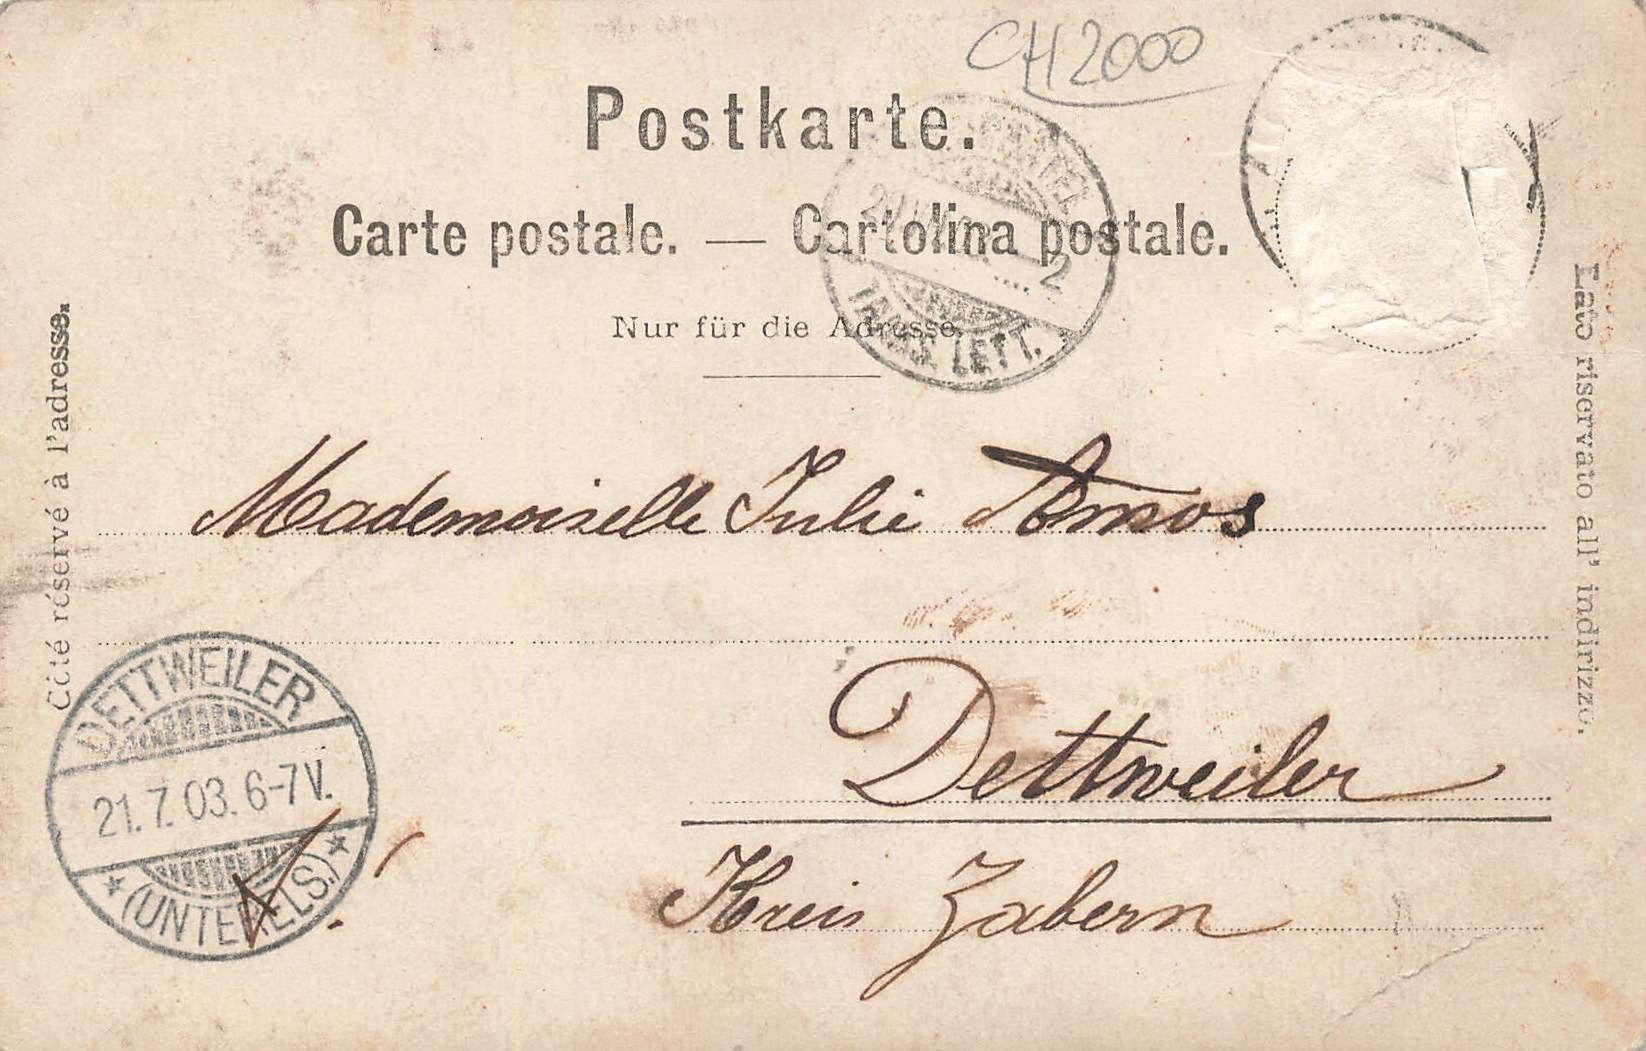 CH 2000
Postkarte.
Carte postale. — Cartolina postale.
Nur für die Adresse.
2
LETT.
Côté réservé à l'adresse.
Lato riservato all' indirizzo.
Mademoiselle Julie Amos
Dettweiler
Kreis Zabern
DETTWEILER
21.7.03. 6-7V.
* (UNTERELS.) *